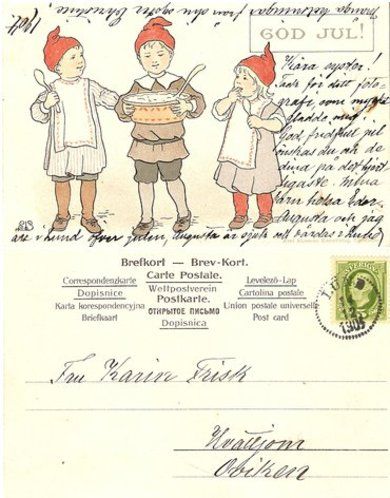 Många helsningar från din syster Christine
1904
GOD JUL!
Kära syster!
Tack för ditt foto-
grafi, som mycket
gladde mig.
God, fredfull jul
önskas du och de
dina på det hjert
ligaste. Mina
barn helsa Eder.
Augusta och jag
äro i Lund öfver julen, Augusta är sjuk och vårdas i Lund
Brefkort — Brev-Kort.
Carte Postale.
Correspondenzkarte
Weltpostverein
Levelező-Lap
Dopisnice
Postkarte.
Cartolina postale
Karta korespondencyjna
ОТКРЫТОЕ ПИСЬМО
Union postale universelle
Briefkaart
Dopisnica
Post card
SVERIGE
1904
Fru Karin Frisk
Hvålljom
Oviken